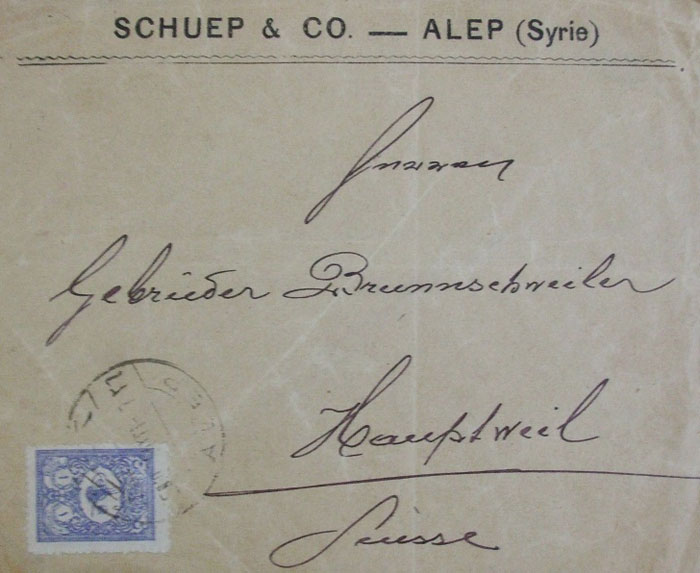 SCHUEP & CO. — ALEP (Syrie)
Herren
Gebrüder Brunnschweiler
Hauptweil
Suisse
ALEP
1 1